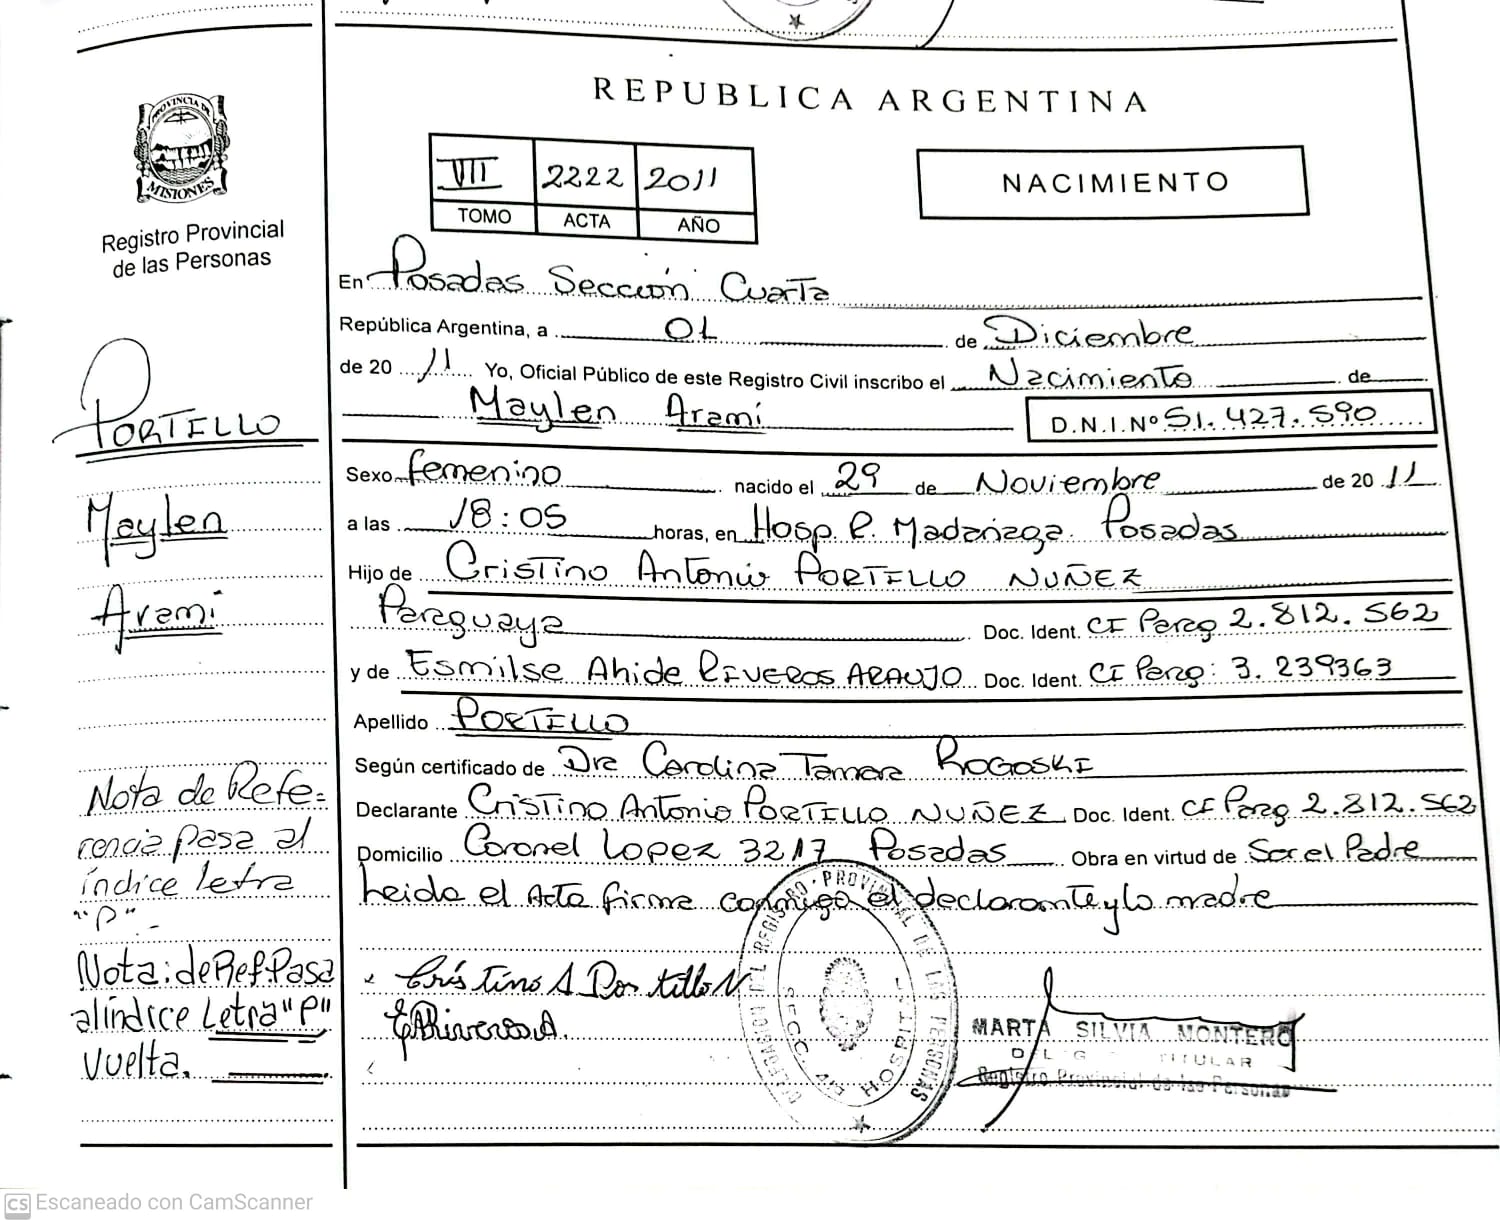 REPUBLICA ARGENTINA
PROVINCIA DE
MISIONES
Registro Provincial
de las Personas
VII 2222 2011
TOMO ACTA AÑO
NACIMIENTO
En Posadas Sección Cuarta
República Argentina, a 01 de Diciembre
de 20 11 Yo, Oficial Público de este Registro Civil inscribo el Nacimiento de
Maylen Arami D.N.I.Nº 51.427.590
Sexo femenino nacido el 29 de Noviembre de 20 11
a las 18:05 horas, en Hosp. R. Madariaga. Posadas
Hijo de Cristino Antonio PORTILLO NUÑEZ
Paraguaya Doc. Ident. CI Parag 2.812.562
y de Esmilse Ahide RIVEROS ARAUJO Doc. Ident. CI Parag: 3.239363
Apellido PORTILLO
Según certificado de Dra Carolina Tamara ROGOSKI
Declarante Cristino Antonio PORTILLO NUÑEZ Doc. Ident. CI Parag 2.812.562
Domicilio Coronel Lopez 3217 Posadas Obra en virtud de Ser el Padre
heida el Acta firma conmigo el declarante y la madre
PORTILLO
Maylen
Arami
Nota de Refe=
rencia pasa al
índice letra
"P".-
Nota: de Ref. Pasa
al índice Letra "P"
Vuelta.
Cristino A Portillo N
E A Riveros A.
DELEGACION DEL REGISTRO PROVINCIAL DE LAS PERSONAS
SECC. 4ta HOSPITAL
MARTA SILVIA MONTERO
TITULAR
Registro Provincial de las Personas
CS Escaneado con CamScanner